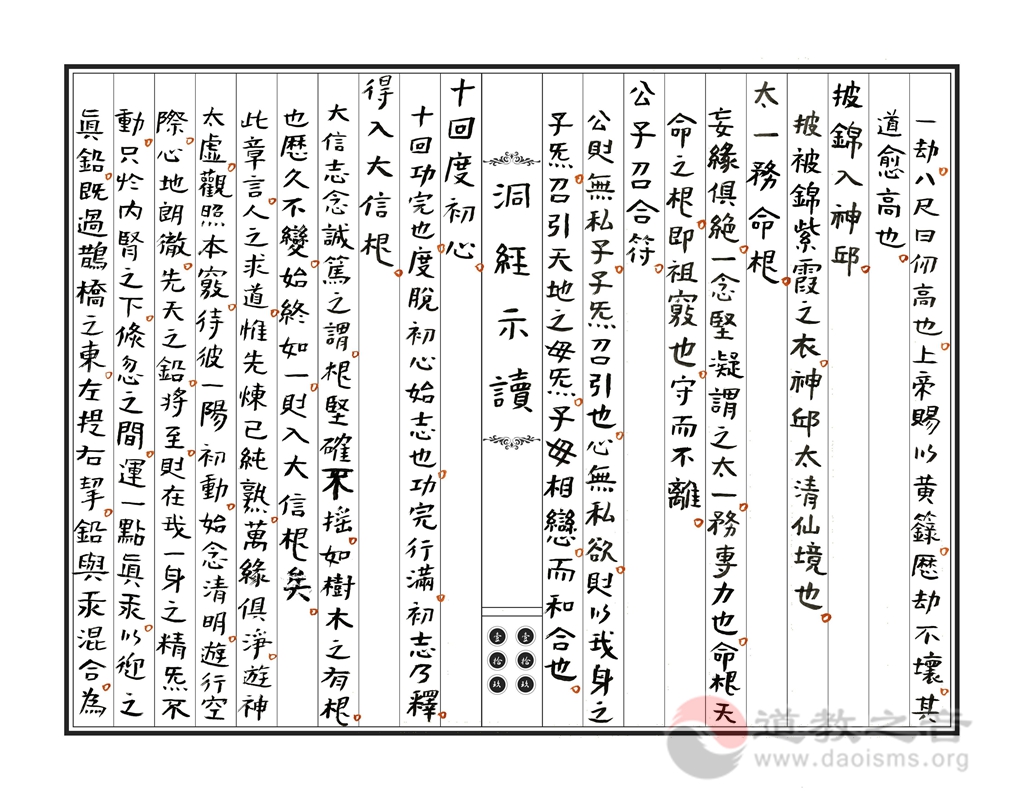 一劫八尺曰仞高也上帝賜以黄籙歷劫不壞其
道愈高也
披錦入神邱
披被錦紫霞之衣神邱太清仙境也
太一務命根
妄緣俱絕一念堅凝謂之太一務專力也命根天
命之根即祖竅也守而不離
公子召合符
公則無私子子炁召引也心無私欲則以我身之
子炁召引天地之母炁子母相戀而和合也
洞經示讀
壹拾玖
壹拾玖
十回度初心
十回功完也度脫初心始志也功完行滿初志乃釋
得入大信根
大信志念誠篤之謂根堅確不摇如樹木之有根
也歷久不變始終如一則入大信根矣
此章言人之求道惟先煉己純熟萬緣俱淨遊神
太虛觀照本竅待彼一陽初動始念清明遊行空
際心地朗徹先天之鉛将至則在我一身之精炁不
動只扵内腎之下倏忽之間運一點眞汞以迎之
眞鉛既過鵲橋之東左提右挈鉛與汞混合為
道教之音
www.daoisms.org